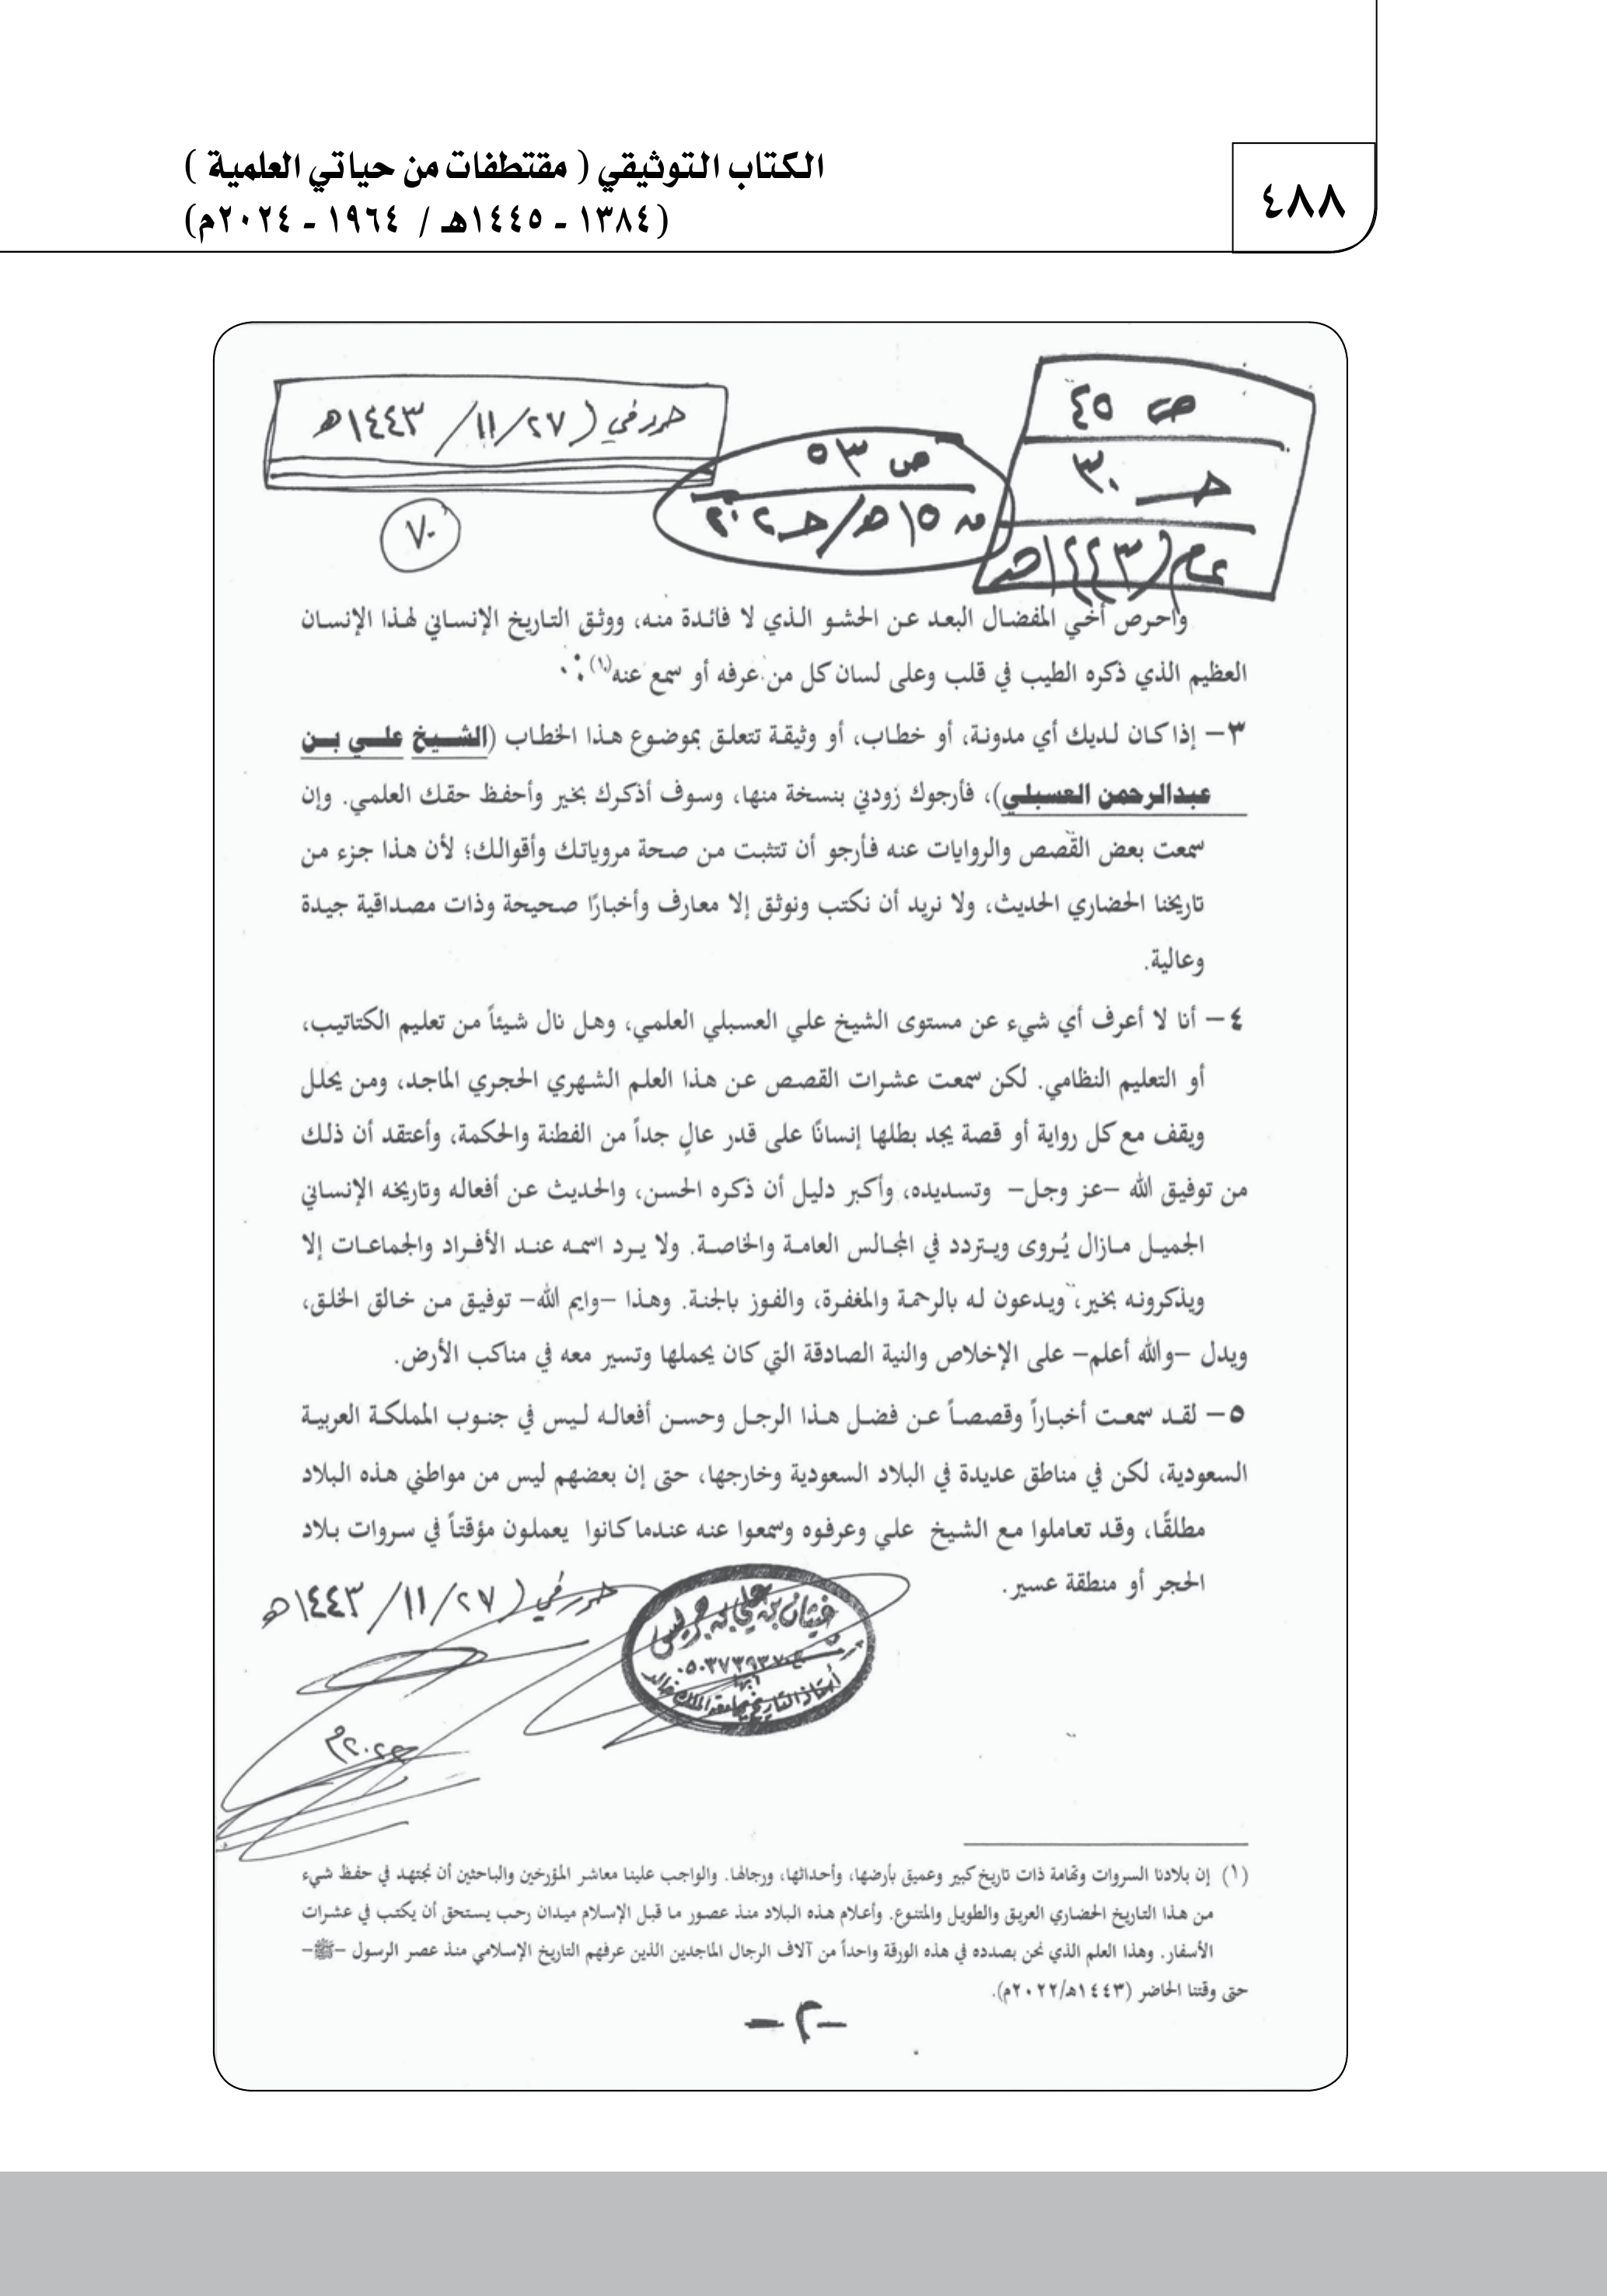 ٤٨٨
الكتاب التوثيقي ( مقتطفات من حياتي العلمية )
(١٣٨٤ - ١٤٤٥هـ / ١٩٦٤ - ٢٠٢٤م)
ص ٤٥
حـ ٣٠
عام (١٤٤٣هـ
ص ٥٣
حـ٢٠٢/هـ١٥
حرر في (٢٧/ ١١/ ١٤٤٣هـ
٧٠
واحرص أخي المفضال البعد عن الحشو الذي لا فائدة منه، ووثق التاريخ الإنساني لهذا الإنسان
العظيم الذي ذكره الطيب في قلب وعلى لسان كل من عرفه أو سمع عنه(١).
٣- إذا كان لديك أي مدونة، أو خطاب، أو وثيقة تتعلق بموضوع هذا الخطاب (الشيخ علي بن
عبدالرحمن العسبلي)، فأرجوك زودني بنسخة منها، وسوف أذكرك بخير وأحفظ حقك العلمي. وإن
سمعت بعض القصص والروايات عنه فأرجو أن تتثبت من صحة مروياتك وأقوالك؛ لأن هذا جزء من
تاريخنا الحضاري الحديث، ولا نريد أن نكتب ونوثق إلا معارف وأخبارًا صحيحة وذات مصداقية جيدة
وعالية.
٤- أنا لا أعرف أي شيء عن مستوى الشيخ علي العسبلي العلمي، وهل نال شيئاً من تعليم الكتاتيب،
أو التعليم النظامي. لكن سمعت عشرات القصص عن هذا العلم الشهري الحجري الماجد، ومن يحلل
ويقف مع كل رواية أو قصة يجد بطلها إنسانًا على قدر عالٍ جداً من الفطنة والحكمة، وأعتقد أن ذلك
من توفيق الله -عز وجل- وتسديده، وأكبر دليل أن ذكره الحسن، والحديث عن أفعاله وتاريخه الإنساني
الجميل مازال يُروى ويتردد في المجالس العامة والخاصة. ولا يرد اسمه عند الأفراد والجماعات إلا
ويذكرونه بخير، ويدعون له بالرحمة والمغفرة، والفوز بالجنة. وهذا -وايم الله- توفيق من خالق الخلق،
ويدل -والله أعلم- على الإخلاص والنية الصادقة التي كان يحملها وتسير معه في مناكب الأرض.
٥- لقد سمعت أخباراً وقصصاً عن فضل هذا الرجل وحسن أفعاله ليس في جنوب المملكة العربية
السعودية، لكن في مناطق عديدة في البلاد السعودية وخارجها، حتى إن بعضهم ليس من مواطني هذه البلاد
مطلقًا، وقد تعاملوا مع الشيخ علي وعرفوه وسمعوا عنه عندما كانوا يعملون مؤقتاً في سروات بلاد
الحجر أو منطقة عسير.
حرر في (٢٧/ ١١/ ١٤٤٣هـ
٢٠٢٢م
غيثان بن علي بن جريس
أبها
أستاذ التاريخ بجامعة الملك خالد
(١) إن بلادنا السروات وتهامة ذات تاريخ كبير وعميق بأرضها، وأحداثها، ورجالها. والواجب علينا معاشر المؤرخين والباحثين أن نجتهد في حفظ شيء
من هذا التاريخ الحضاري العريق والطويل والمتنوع. وأعلام هذه البلاد منذ عصور ما قبل الإسلام ميدان رحب يستحق أن يكتب في عشرات
الأسفار. وهذا العلم الذي نحن بصدده في هذه الورقة واحداً من آلاف الرجال الماجدين الذين عرفهم التاريخ الإسلامي منذ عصر الرسول -ﷺ-
حتى وقتنا الحاضر (١٤٤٣هـ/٢٠٢٢م).
-٢-